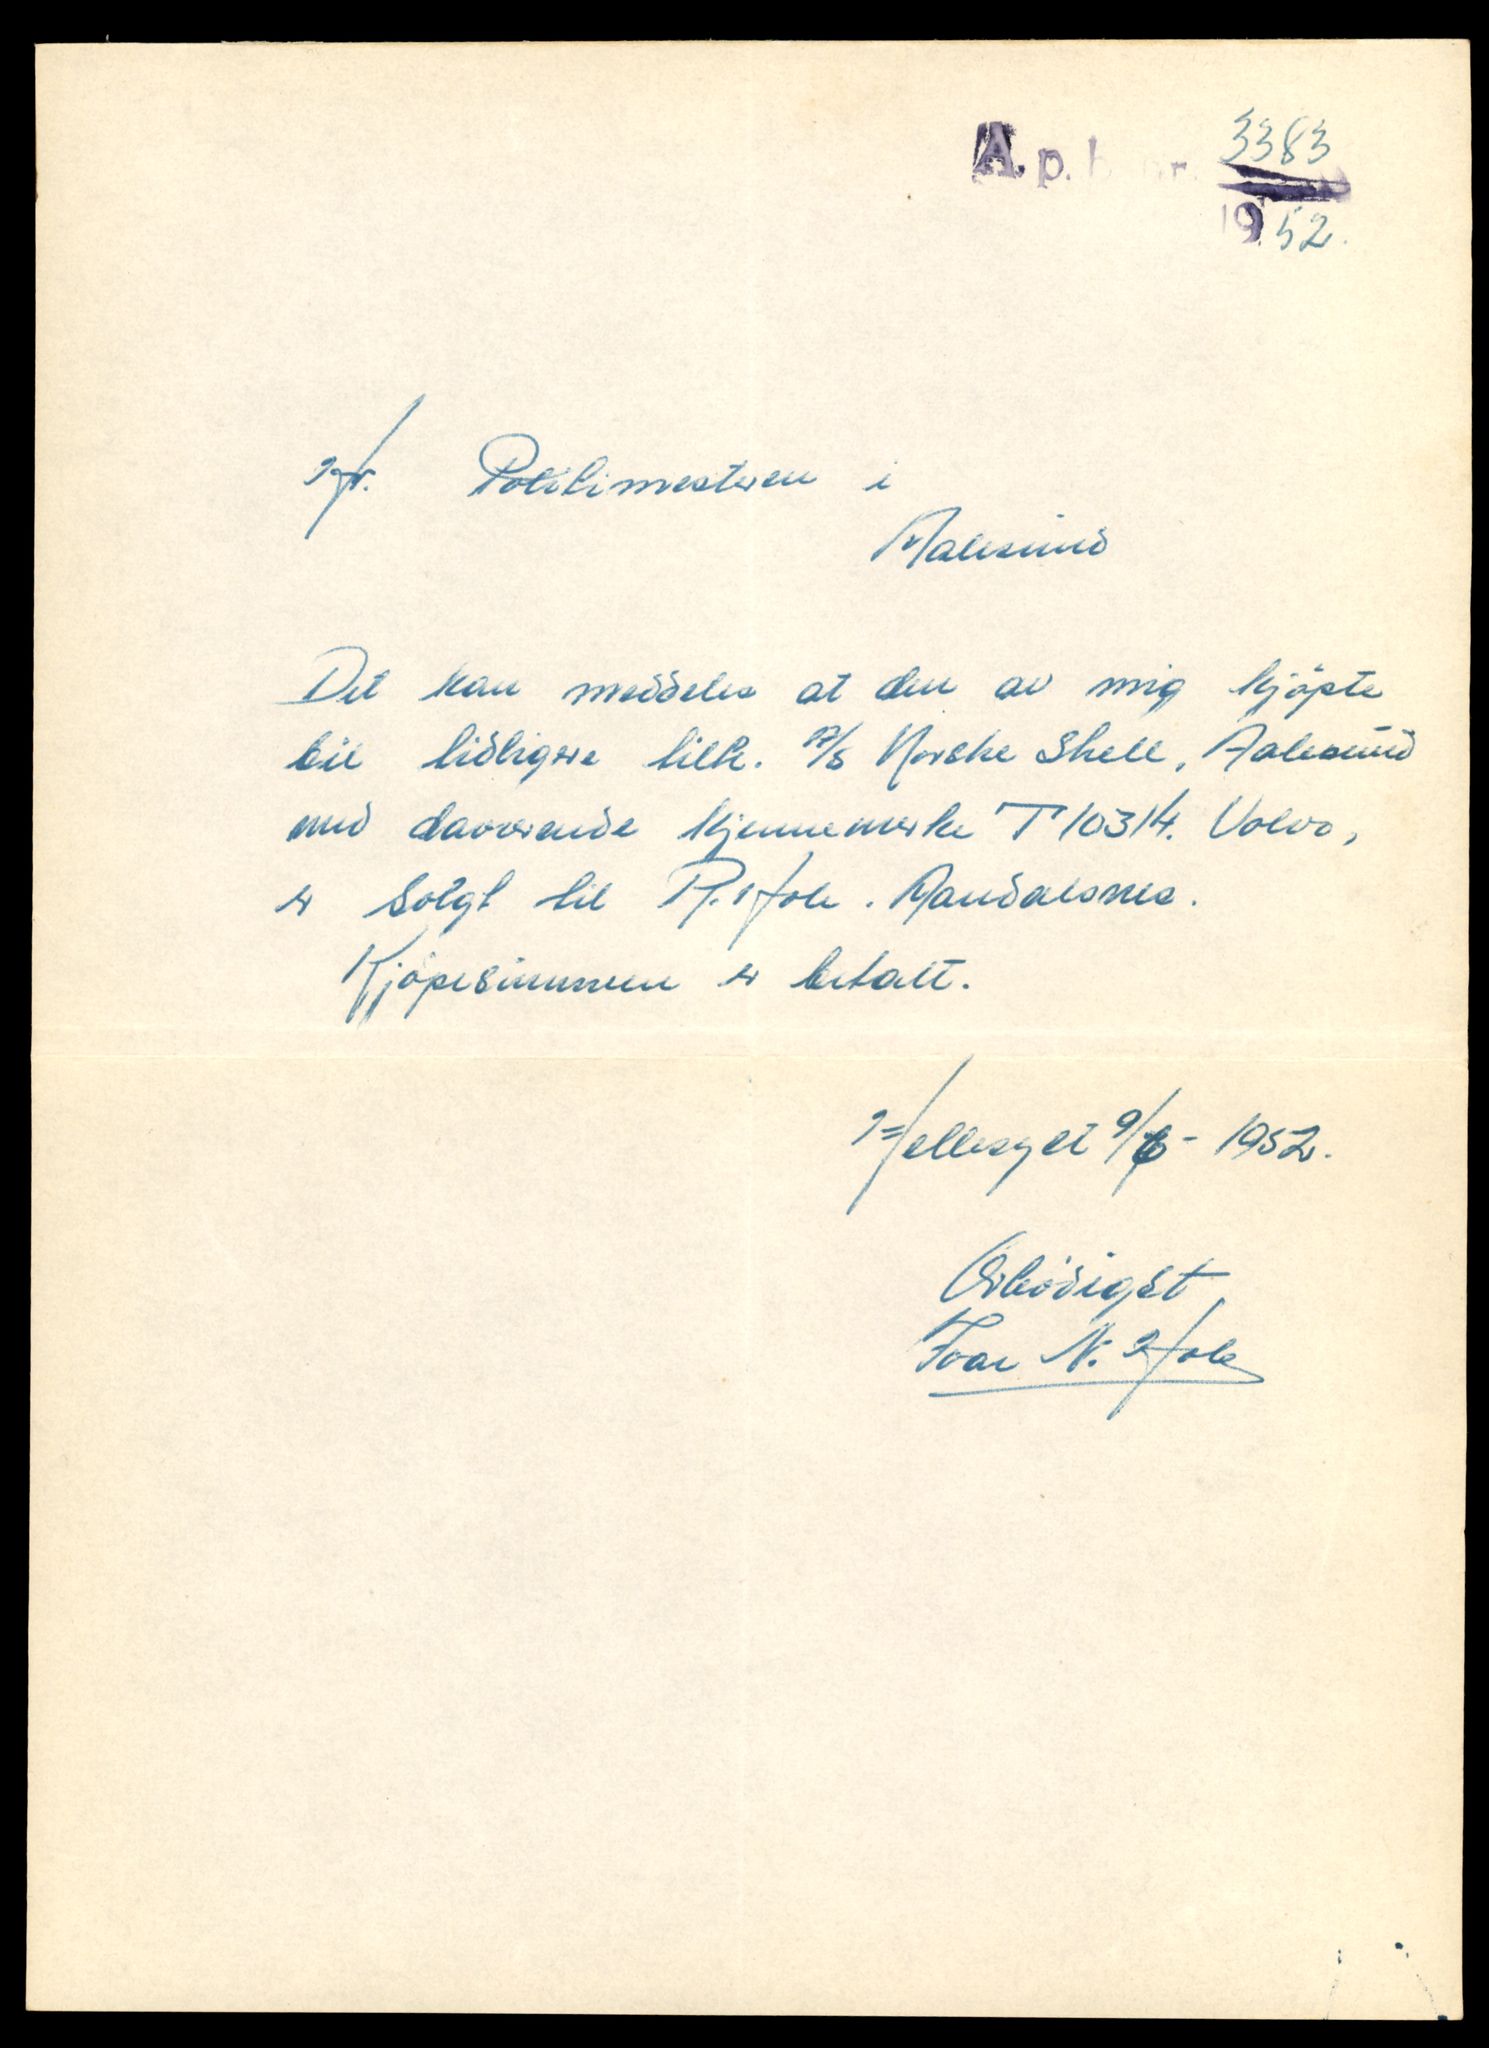 A. p. b. nr. 3383
1952.
Hr. Politimesteren i
Aalesund
Det kan meddeles at den av mig kjöpte
bil tidligere tilh. A/S Norske Shell, Aalesund
med daværende kjennemerke T 10314. Volvo,
er solgt til P. Hole. Aandalsnes.
Kjöpesummen er betalt.
Hellesylt 9/6 - 1952.
Ærbödigst
Ivar N. Hole